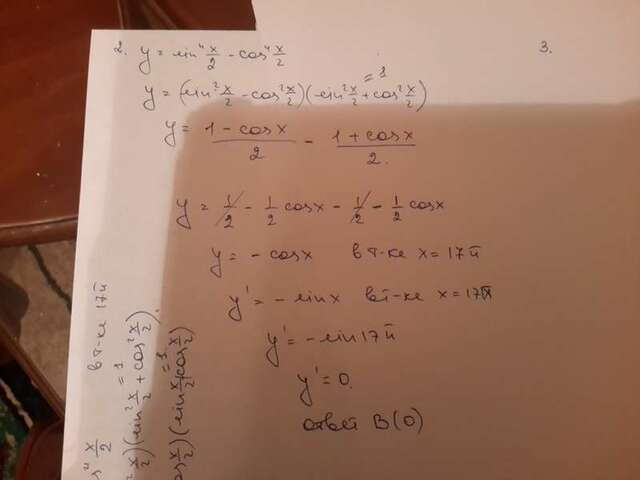 2. y = sin⁴ x/2 - cos⁴ x/2
3.
= 1
y = (sin² x/2 - cos² x/2)(sin² x/2 + cos² x/2)
y = (1 - cos x)/2 - (1 + cos x)/2.
y = 1/2 - 1/2 cos x - 1/2 - 1/2 cos x
y = - cos x в т-ке x = 17π
y' = - sin x в т-ке x = 17π
y' = - sin 17π
y' = 0.
ответ B(0)
cos⁴ x/2 в т-ке 17π
= 1
x/2)(sin² x/2 + cos² x/2).
= 1
cos x/2)(sin x/2 cos x/2)